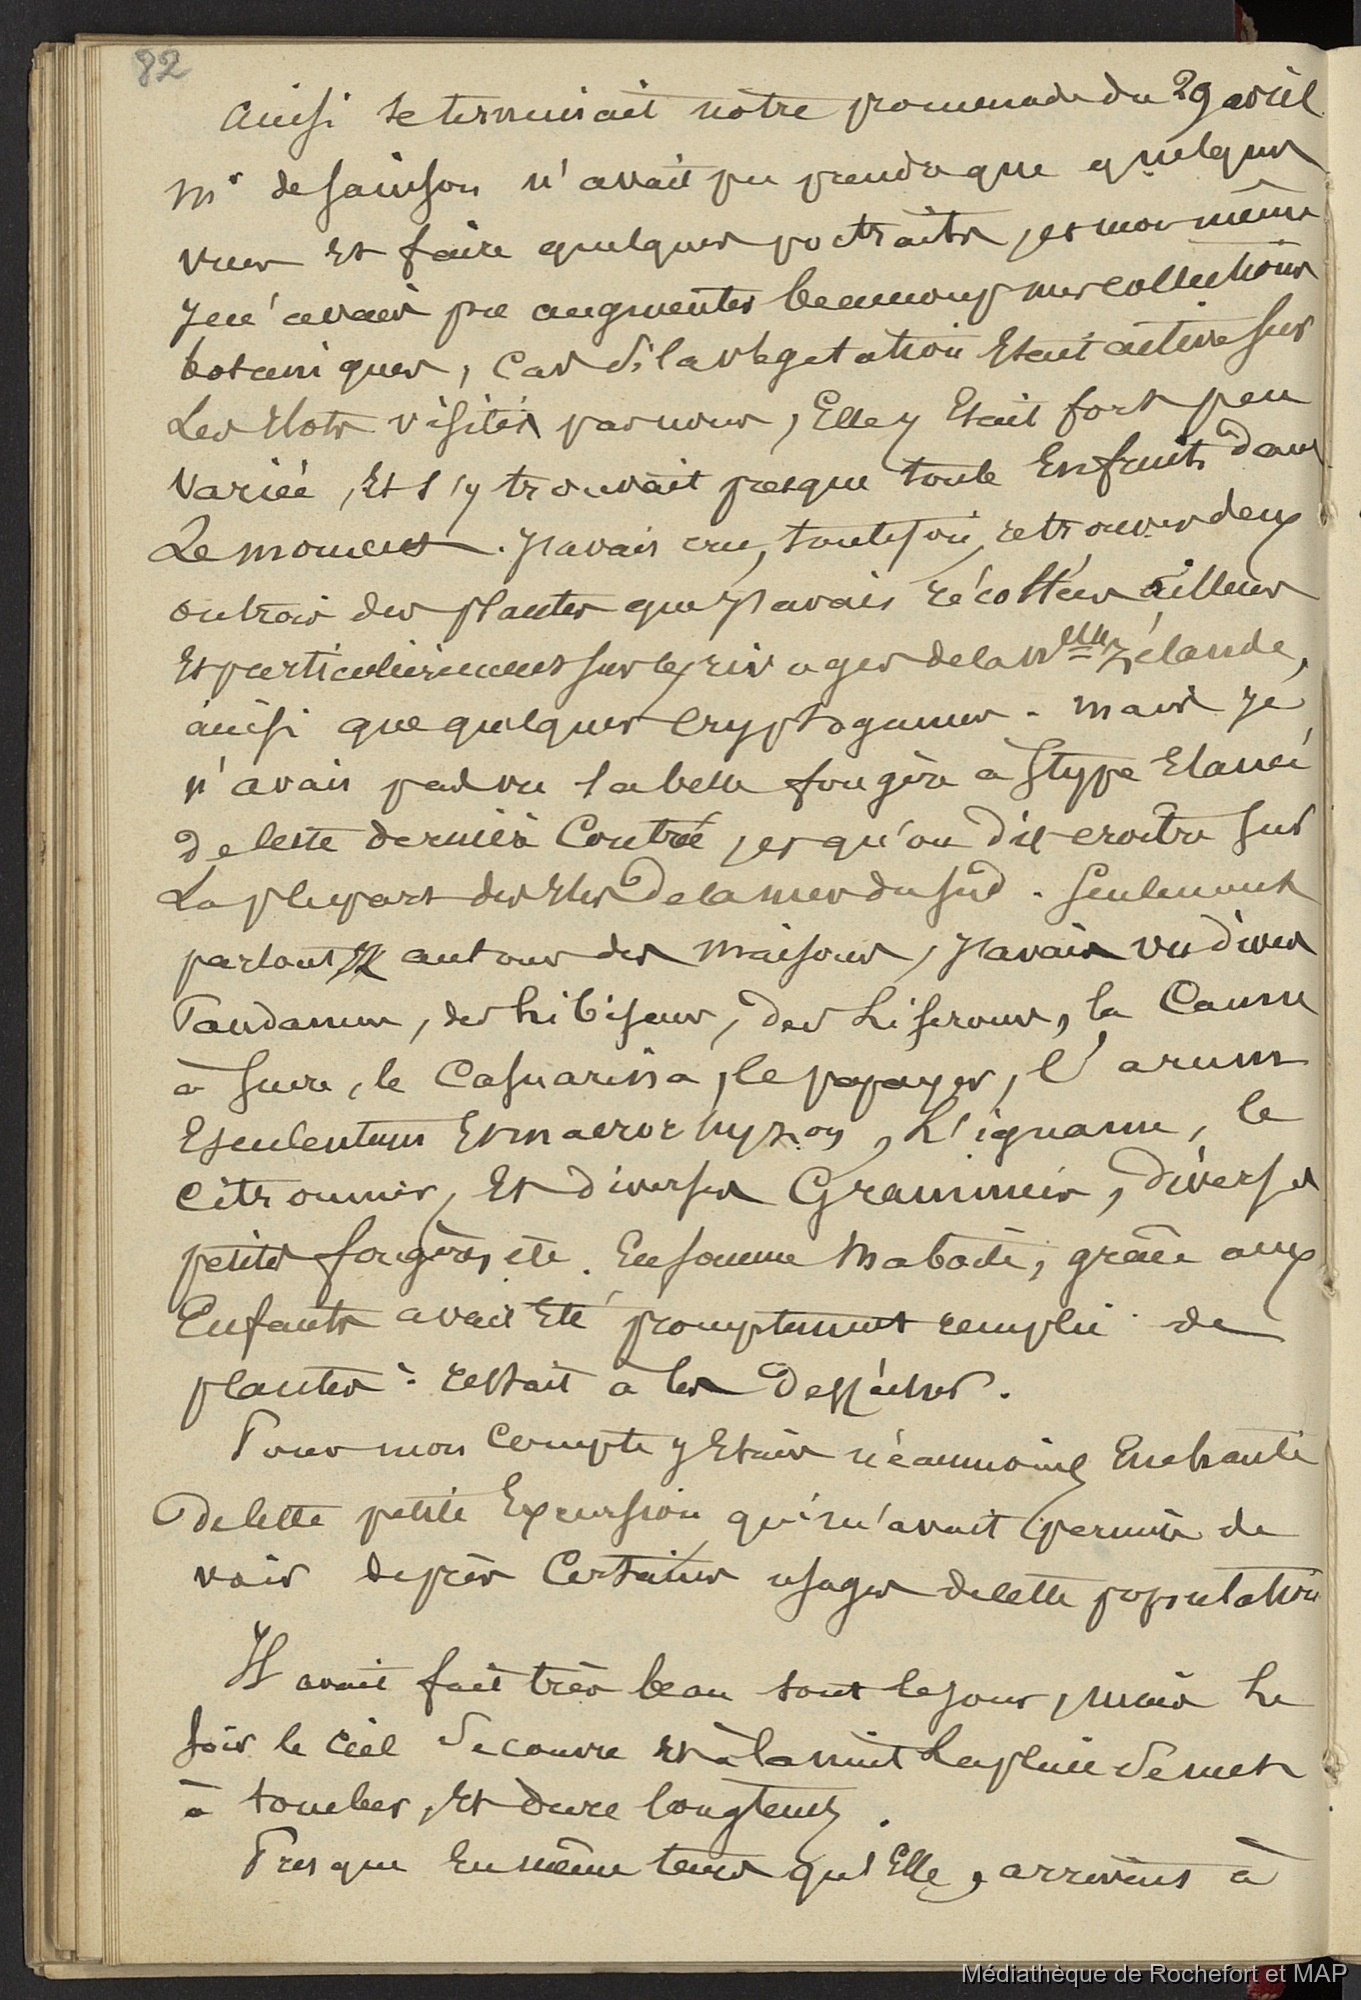 82
Ainsi se terminait notre promenade du 29 avril
Mr de Sainson n'avait pu prendre que quelques
vues et faire quelques portraits, et moi même
je n'avais pu augmenter beaucoup mes collections
botaniques, car si la végetation était active sur
les îlots visités par nous, Elle y était fort peu
variée, et s'y trouvait presque toute En fruits dans
le moment. J'avais cru, toutefois, retrouver deux
ou trois des plantes que j'avais récoltées ailleurs
Et particulièrement sur les rivages de la Nlle Zélande,
ainsi que quelques cryptogames. Mais je
n'avais pas vu la belle fougère à stype Elancé
de cette dernière Contrée, et qu'on dit croitre sur
la plupart des îles de la mer du sud. Seulement
partout autour des maisons, j'avais vu divers
Pandanus, des hibiscus, des Liserons, la Canne
à Sucre, le Casuarina, le papayer, l'arum
Esculentum Et macrorhyzon, L'igname, le
Citronnier, Et diverses Graminées, diverses
petites fougères, etc. En somme ma boîte, grâce aux
Enfants avait Eté promptement remplie de
plantes : restait à les dessécher.
Pour mon compte j'étais néanmoins Enchanté
de cette petite Excursion qui m'avait permis de
voir de près Certains usages de cette population
Il avait fait très beau tout le jour, mais le
soir le ciel se couvre et à la nuit la pluie se met
à tomber, Et dure longtems.
Presque En même tems qu'Elle, arrivent à
Médiathèque de Rochefort et MAP